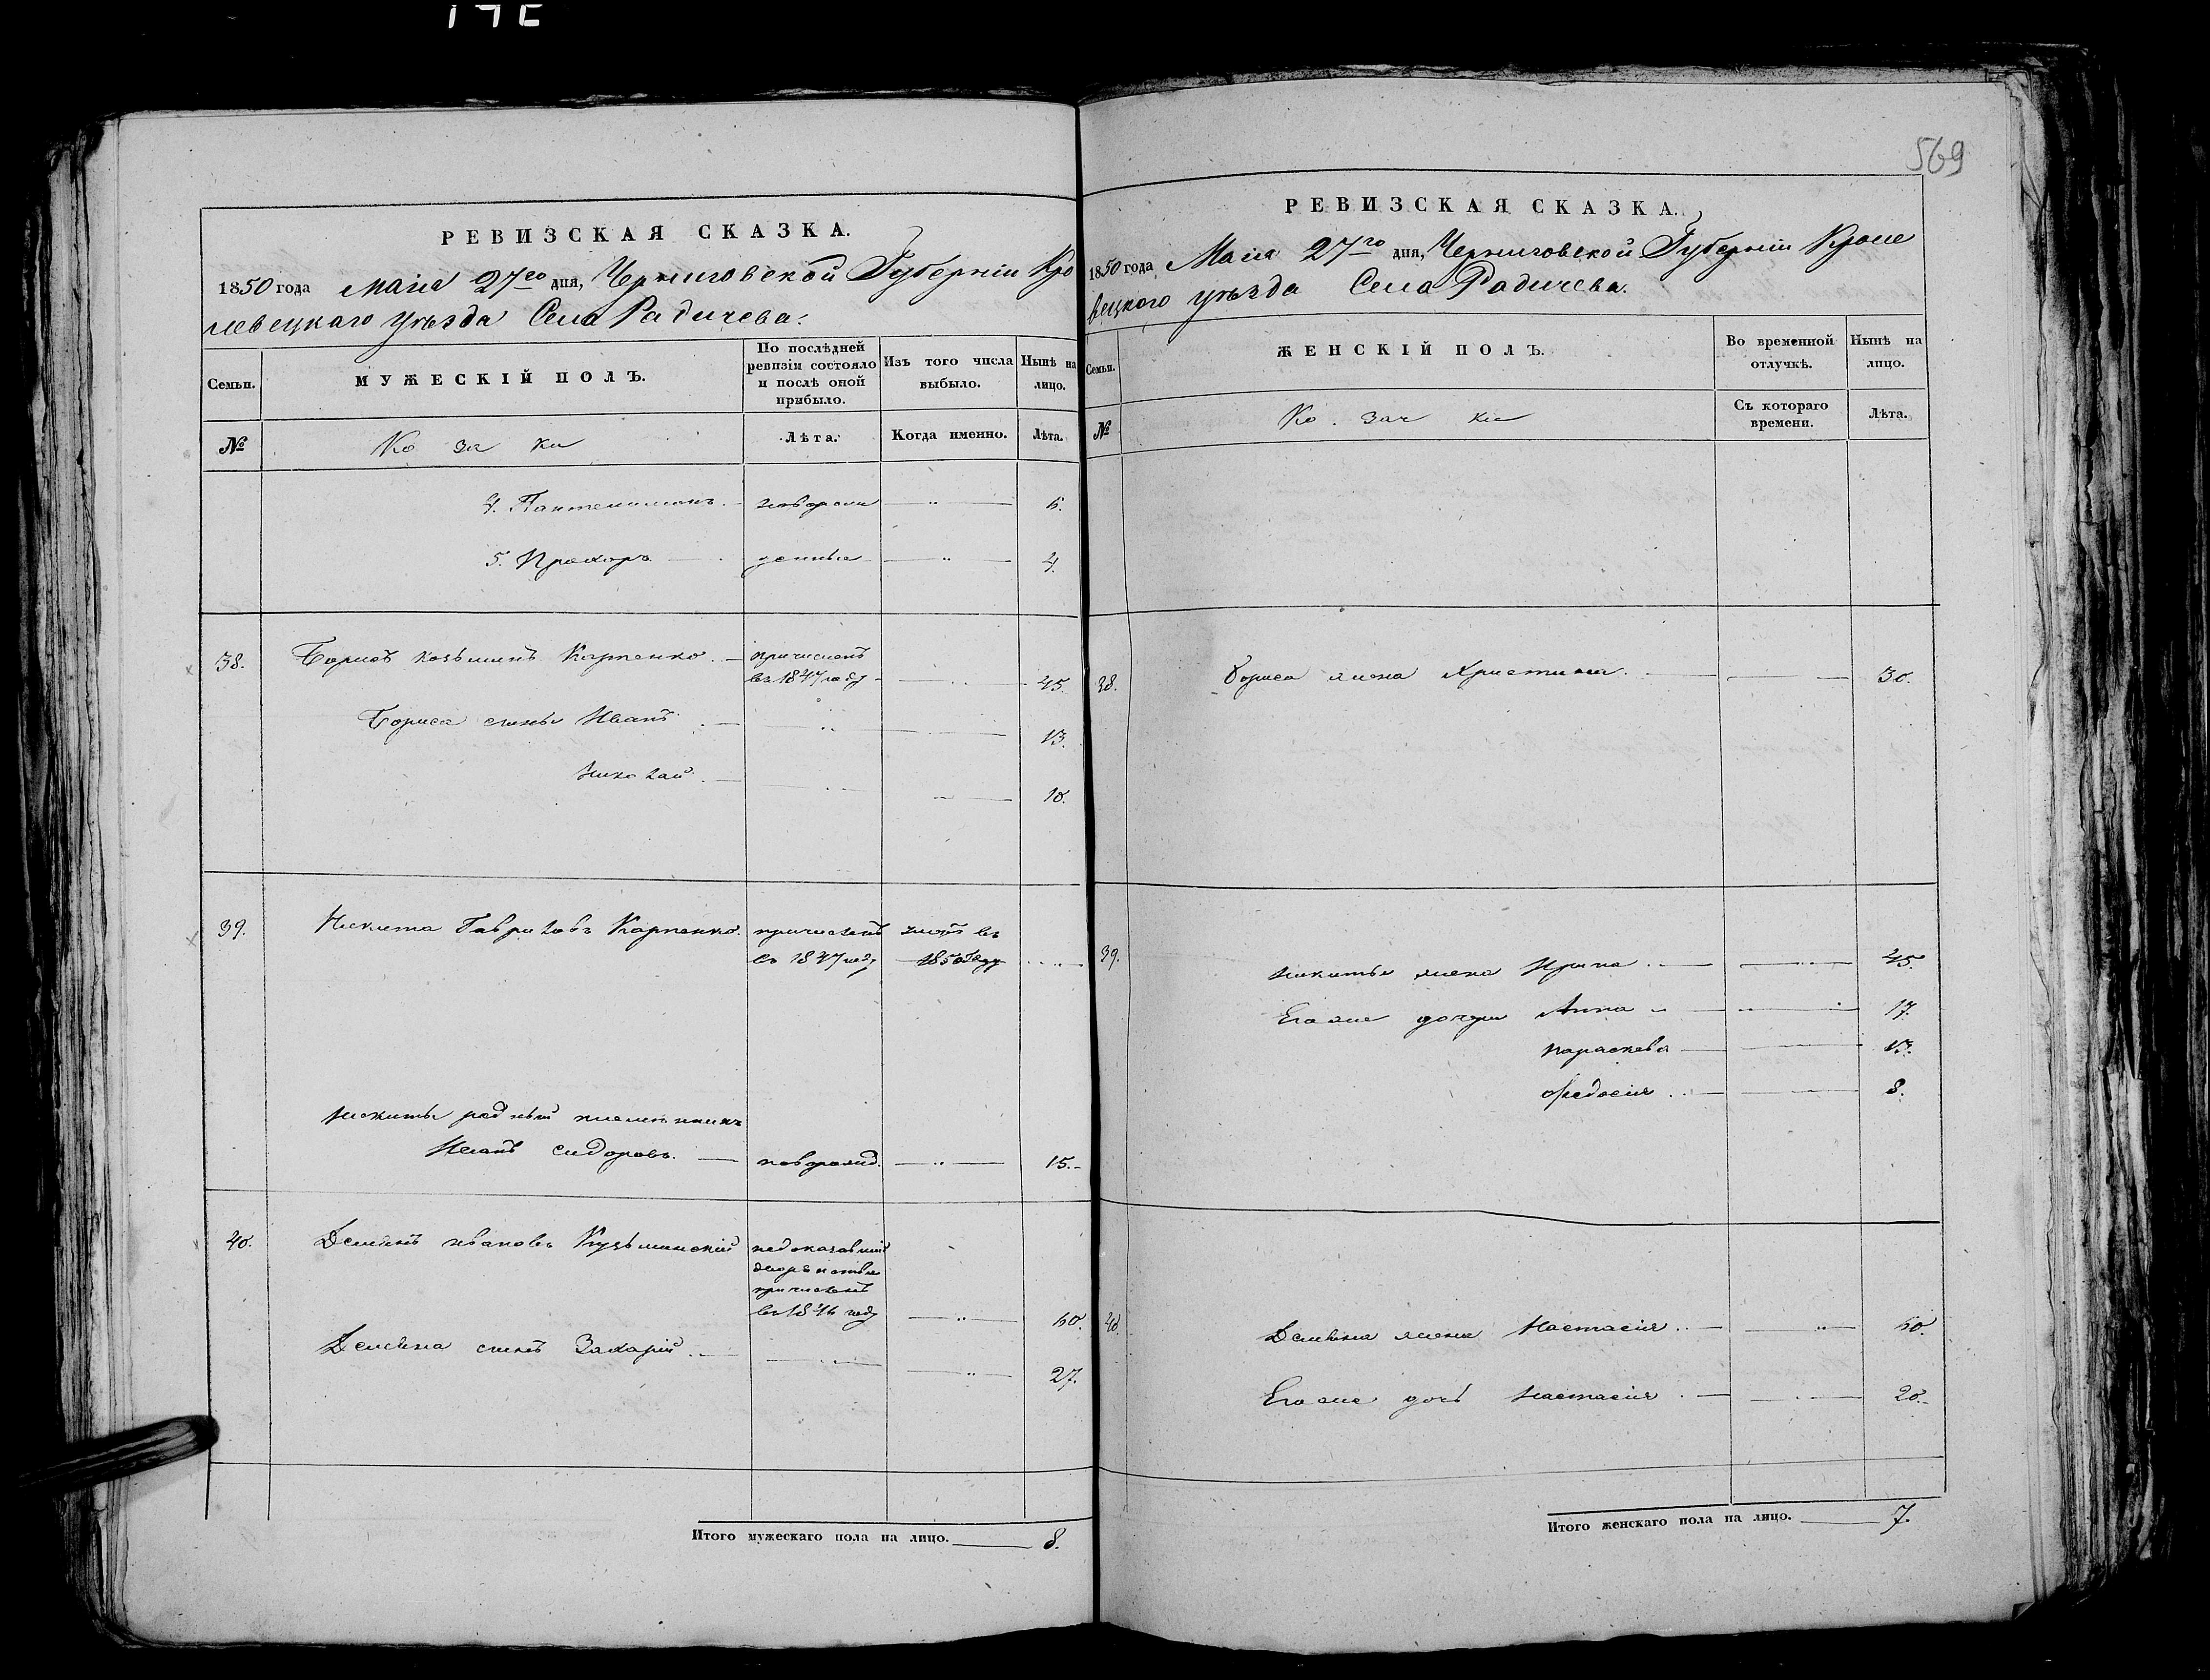 569
РЕВИЗСКАЯ СКАЗКА.
1850 года Маія 27го дня, Черниговской Губерніи Кро
левецкаго уѣзда Села Радичева.
Семьи.
МУЖЕСКІЙ ПОЛЪ.
По послѣдней ревизіи состояло и послѣ оной прибыло.
Изъ того числа выбыло.
Нынѣ на лицо.
№
Ко за ки
Лѣта.
Когда именно.
Лѣта.
4. Пантелимонъ новорож 6.
5. Прохоръ денные 4.
38. Борисъ Козьминъ Карпенко. причисленъ
въ 1847 году 45.
Бориса сыны Иванъ 13.
Николай 10.
39. Никита Гавриловъ Карпенко. причисленъ
въ 1847 году 1850 году
Никиты родный племянникъ
Иванъ Сидоровъ. новорожд. 15.
40. Демьянъ Ивановъ Кузьминскій недоказавшій
дворянства
причисленъ
въ 1846 году 60.
Демьяна сынъ Захарій 27.
Итого мужескаго пола на лицо. 8.
РЕВИЗСКАЯ СКАЗКА.
1850 года Маія 27го дня, Черниговской Губерніи Кроле
вецкого уѣзда Села Радичева.
Семьи.
ЖЕНСКІЙ ПОЛЪ.
Во временной отлучкѣ.
Нынѣ на лицо.
№
Ко зач ки
Съ котораго времени.
Лѣта.
38. Бориса жена Христина. 30.
39. Никиты жена Ирина 45.
Его же дочери Анна 17.
Параскева 13.
Федосія 8.
40. Демьяна жена Настасія 60.
Его же дочь Настасія 20.
Итого женскаго пола на лицо. 7.